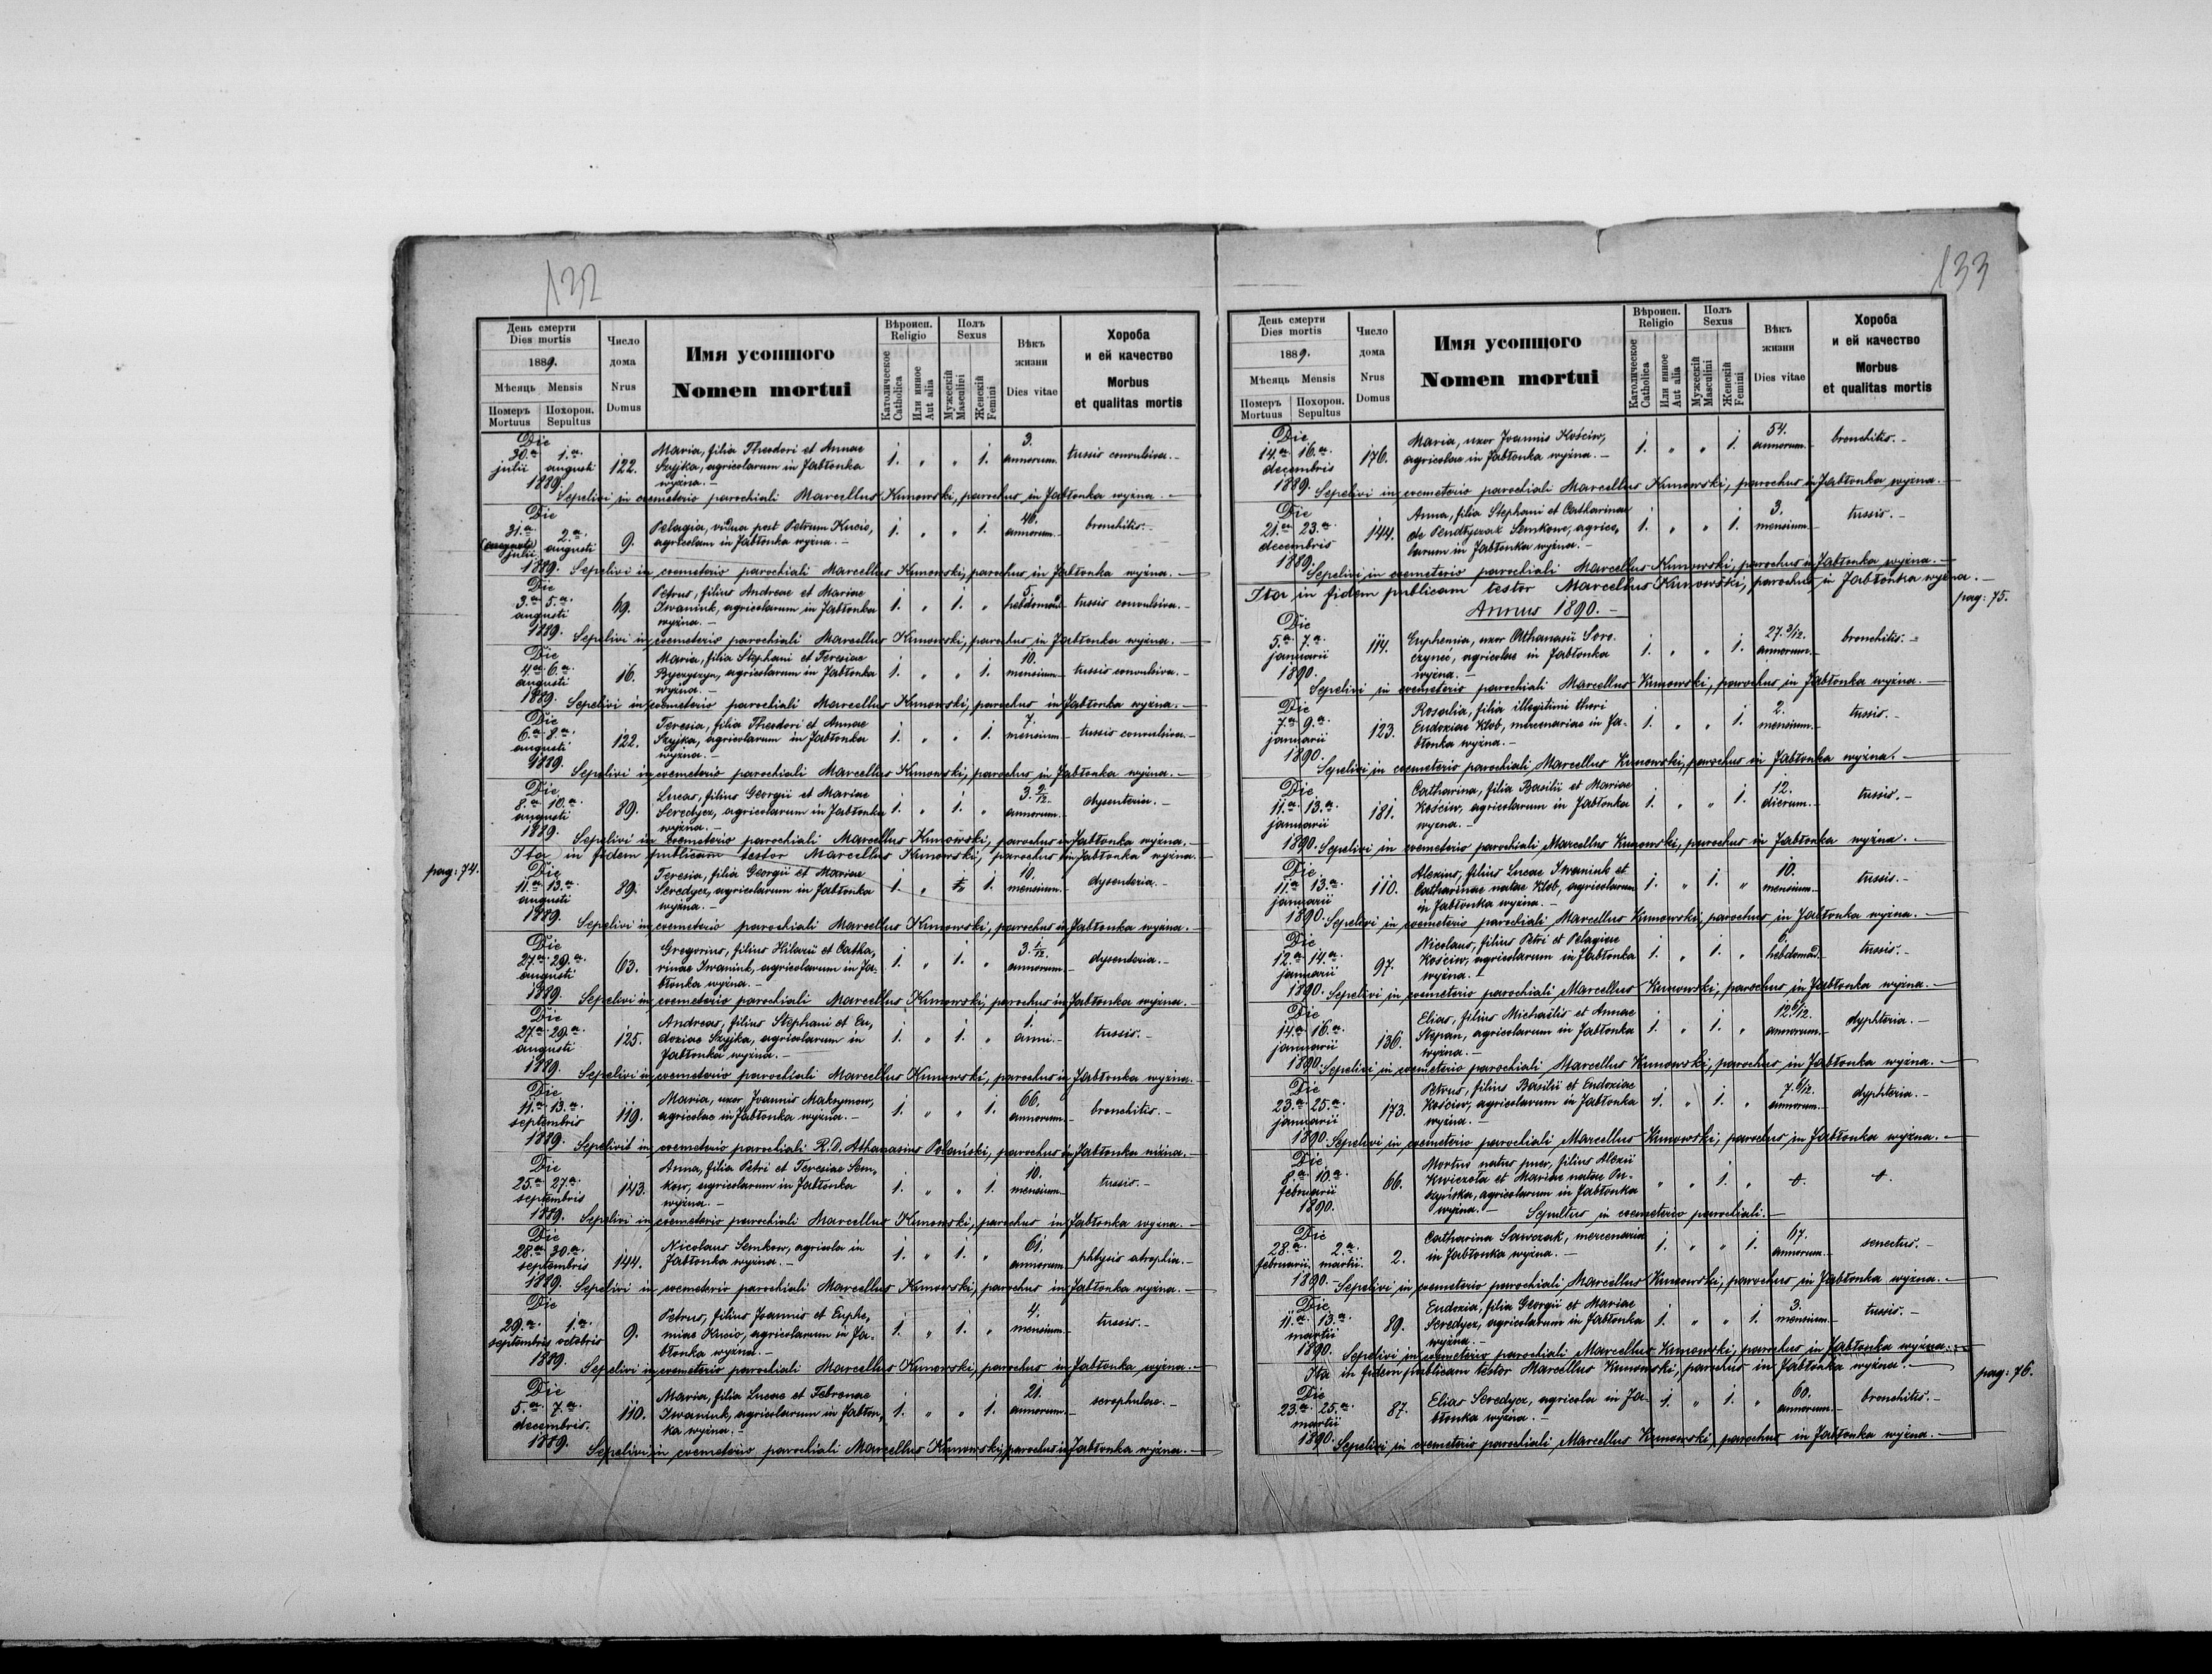 132
День смерти
Dies mortis
1889.
Мѣсяць Mensis
Померъ Похорон.
Mortuus Sepultus
Число
дома
Nrus
Domus
Имя усопшого
Nomen mortui
Вѣроисп.
Religio
Католическое
Catholica
Или инное
Aut alia
Полъ
Sexus
Мужескій
Masculini
Женскій
Femini
Вѣкъ
жизни
Dies vitae
Хороба
и ей качество
Morbus
et qualitas mortis
Die
30.a 1.a
julii augusti
1889.
122.
Maria, filia Theodori et Annae
Szyjka, agricolarum in Jabłonka
wyżna.-
1. " " 1.
3.
annorum.
tussis convulsiva.-
Sepelivi in coemeterio parochiali Marcellus Kunowski, parochus in Jabłonka wyżna.-
Die
31.a 2.a
julii augusti
1889.
9.
Pelagia, vidua post Petrum Kucio,
agricolam in Jabłonka wyżna.-
1. " " 1.
46.
annorum.
bronchitis.-
Sepelivi in coemeterio parochiali Marcellus Kunowski, parochus in Jabłonka wyżna.-
Die
3.a 5.a
augusti
1889.
49.
Petrus, filius Andreae et Mariae
Iwaniuk, agricolarum in Jabłonka
wyżna.-
1. " 1. "
5.
hebdomad.
tussis convulsiva.-
Sepelivi in coemeterio parochiali Marcellus Kunowski, parochus in Jabłonka wyżna.-
Die
4.a 6.a
augusti
1889.
16.
Maria, filia Stephani et Teresiae
Ryczyszyn, agricolarum in Jabłonka
wyżna.-
1. " " 1.
10.
mensium.
tussis convulsiva.-
Sepelivi in coemeterio parochiali Marcellus Kunowski, parochus in Jabłonka wyżna.-
Die
6.a 8.a
augusti
1889.
122.
Teresia, filia Theodori et Annae
Szyjka, agricolarum in Jabłonka
wyżna.-
1. " " 1.
7.
mensium.
tussis convulsiva.-
Sepelivi in coemeterio parochiali Marcellus Kunowski, parochus in Jabłonka wyżna.-
Die
8.a 10.a
augusti
1889.
89.
Lucas, filius Georgii et Mariae
Seredycz, agricolarum in Jabłonka
wyżna.-
1. " 1. "
3. 2/12.
annorum.
dysenteria.-
Sepelivi in coemeterio parochiali Marcellus Kunowski, parochus in Jabłonka wyżna.-
Ita in fidem publicam testor Marcellus Kunowski, parochus in Jabłonka wyżna.
pag: 74.
Die
11.a 13.a
augusti
1889.
89.
Teresia, filia Georgii et Mariae
Seredycz, agricolarum in Jabłonka
wyżna.-
1. " 1.
10.
mensium.
dysenteria.-
Sepelivi in coemeterio parochiali Marcellus Kunowski, parochus in Jabłonka wyżna.-
Die
27.a 29.a
augusti
1889.
63.
Gregorius, filius Hilarii et Catha,
rinae Iwaniuk, agricolarum in Ja-
błonka wyżna.-
1. " 1. "
3. 1/12.
annorum.
dysenteria.-
Sepelivi in coemeterio parochiali Marcellus Kunowski, parochus in Jabłonka wyżna.-
Die
27.a 29.a
augusti
1889.
125.
Andreas, filius Stephani et Eu,
doxiae Szyjka, agricolarum in
Jabłonka wyżna.-
1. " 1. "
1.
anni.
tussis.-
Sepelivi in coemeterio parochiali Marcellus Kunowski, parochus in Jabłonka wyżna.-
Die
11.a 13.a
septembris
1889.
119.
Maria, uxor Joannis Maksymow,
agricolae in Jabłonka wyżna.-
1. " " 1.
66.
annorum.
bronchitis.-
Sepelivit in coemeterio parochiali R.D. Athanasius Polański, parochus in Jabłonka niżna.-
Die
25.a 27.a
septembris
1889.
143.
Anna, filia Petri et Teresiae Sem,
kow, agricolarum in Jabłonka
wyżna.-
1. " " 1.
10.
mensium.
tussis.-
Sepelivi in coemeterio parochiali Marcellus Kunowski, parochus in Jabłonka wyżna.-
Die
28.a 30.a
septembris
1889.
144.
Nicolaus Semkow, agricola in
Jabłonka wyżna.-
1. " 1. "
61.
annorum.
phtysis atrophia.-
Sepelivi in coemeterio parochiali Marcellus Kunowski, parochus in Jabłonka wyżna.-
Die
29.a 1.a
septembris octobris
1889.
9.
Petrus, filius Joannis et Euphe,
miae Kucio, agricolarum in Ja-
błonka wyżna.-
1. " 1. "
4.
mensium.
tussis.-
Sepelivi in coemeterio parochiali Marcellus Kunowski, parochus in Jabłonka wyżna.-
Die
5.a 7.a
decembris.
1889.
110.
Maria, filia Lucae et Febronae
Iwaniuk, agricolarum in Jabłon,
ka wyżna.-
1. " " 1.
21.
annorum.
scrophulae.-
Sepelivi in coemeterio parochiali Marcellus Kunowski, parochus in Jabłonka wyżna.-
133
День смерти
Dies mortis
1889.
Мѣсяць Mensis
Померъ Похорон.
Mortuus Sepultus
Число
дома
Nrus
Domus
Имя усопшого
Nomen mortui
Вѣроисп.
Religio
Католическое
Catholica
Или инное
Aut alia
Полъ
Sexus
Мужескій
Masculini
Женскій
Femini
Вѣкъ
жизни
Dies vitae
Хороба
и ей качество
Morbus
et qualitas mortis
Die
14.a 16.a
decembris
1889.
176.
Maria, uxor Joannis Kościw,
agricolae in Jabłonka wyżna.-
1. " " 1.
54.
annorum.
bronchitis.-
Sepelivi in coemeterio parochiali Marcellus Kunowski, parochus in Jabłonka wyżna.-
Die
21.a 23.a
decembris
1889.
144.
Anna, filia Stephani et Catharinae
de Pendłyczak Semkow, agrico,
larum in Jabłonka wyżna.-
1. " " 1.
3.
mensium.
tussis.-
Sepelivi in coemeterio parochiali Marcellus Kunowski, parochus in Jabłonka wyżna.-
Ita in fidem publicam testor Marcellus Kunowski, parochus in Jabłonka wyżna.-
pag: 75.
Annus 1890.-
Die
5.a 7.a
januarii
1890.
114.
Euphemia, uxor Athanasii Soro,
czyneć, agricolae in Jabłonka
wyżna.-
1. " " 1.
27. 3/12.
annorum.
bronchitis.-
Sepelivi in coemeterio parochiali Marcellus Kunowski, parochus in Jabłonka wyżna.-
Die
7.a 9.a
januarii
1890.
123.
Rosalia, filia illegitimi thori
Eudoxiae Kłob, mercenariae in Ja-
błonka wyżna.-
1. " " 1.
2.
mensium.
tussis.-
Sepelivi in coemeterio parochiali Marcellus Kunowski, parochus in Jabłonka wyżna.-
Die
11.a 13.a
januarii
1890.
181.
Catharina, filia Basilii et Mariae
Kościw, agricolarum in Jabłonka
wyżna.-
1. " " 1.
12.
dierum.
tussis.-
Sepelivi in coemeterio parochiali Marcellus Kunowski, parochus in Jabłonka wyżna.-
Die
11.a 13.a
januarii
1890.
110.
Alexius, filius Lucae Iwaniuk et
Catharinae natae Kłob, agricolarum
in Jabłonka wyżna.-
1. " 1. "
10.
mensium.
tussis.-
Sepelivi in coemeterio parochiali Marcellus Kunowski, parochus in Jabłonka wyżna.-
Die
12.a 14.a
januarii
1890.
97.
Nicolaus, filius Petri et Pelagiae
Kościw, agricolarum in Jabłonka
wyżna.-
1. " 1. "
6.
hebdomad.
tussis.-
Sepelivi in coemeterio parochiali Marcellus Kunowski, parochus in Jabłonka wyżna.-
Die
14.a 16.a
januarii
1890.
136.
Elias, filius Michaëlis et Annae
Stepan, agricolarum in Jabłonka
wyżna.-
1. " 1. "
12 6/12.
annorum.
dyphteria.-
Sepelivi in coemeterio parochiali Marcellus Kunowski, parochus in Jabłonka wyżna.-
Die
23.a 25.a
januarii
1890.
173.
Petrus, filius Basilii et Eudoxiae
Kościw, agricolarum in Jabłonka
wyżna.-
1. " 1. "
7. 6/12.
annorum.
dyphteria.-
Sepelivi in coemeterio parochiali Marcellus Kunowski, parochus in Jabłonka wyżna.-
Die
8.a 10.a
februarii
1890.
66.
Mortuo natus puer, filius Alexii
Kwiczota et Mariae natae Pu-
szyńska, agricolarum in Jabłonka
wyżna.-
" " 1. "
Sepultus in coemeterio parochiali.-
Die
28.a 2.a
februarii martii.
1890.
2.
Catharina Sawczak, mercenaria
in Jabłonka wyżna.-
1. " " 1.
67.
annorum.
senectus.-
Sepelivi in coemeterio parochiali Marcellus Kunowski, parochus in Jabłonka wyżna.-
Die
11.a 13.a
martii
1890.
89.
Eudoxia, filia Georgii et Mariae
Seredycz, agricolarum in Jabłonka
wyżna.-
1. " " 1.
3.
mensium.
tussis.-
Sepelivi in coemeterio parochiali Marcellus Kunowski, parochus in Jabłonka wyżna.-
Ita in fidem publicam testor Marcellus Kunowski, parochus in Jabłonka wyżna.-
pag: 76.
Die
23.a 25.a
martii
1890.
87.
Elias Seredycz, agricola in Ja-
błonka wyżna.-
1. " 1. "
60.
annorum.
bronchitis.-
Sepelivi in coemeterio parochiali Marcellus Kunowski, parochus in Jabłonka wyżna.-